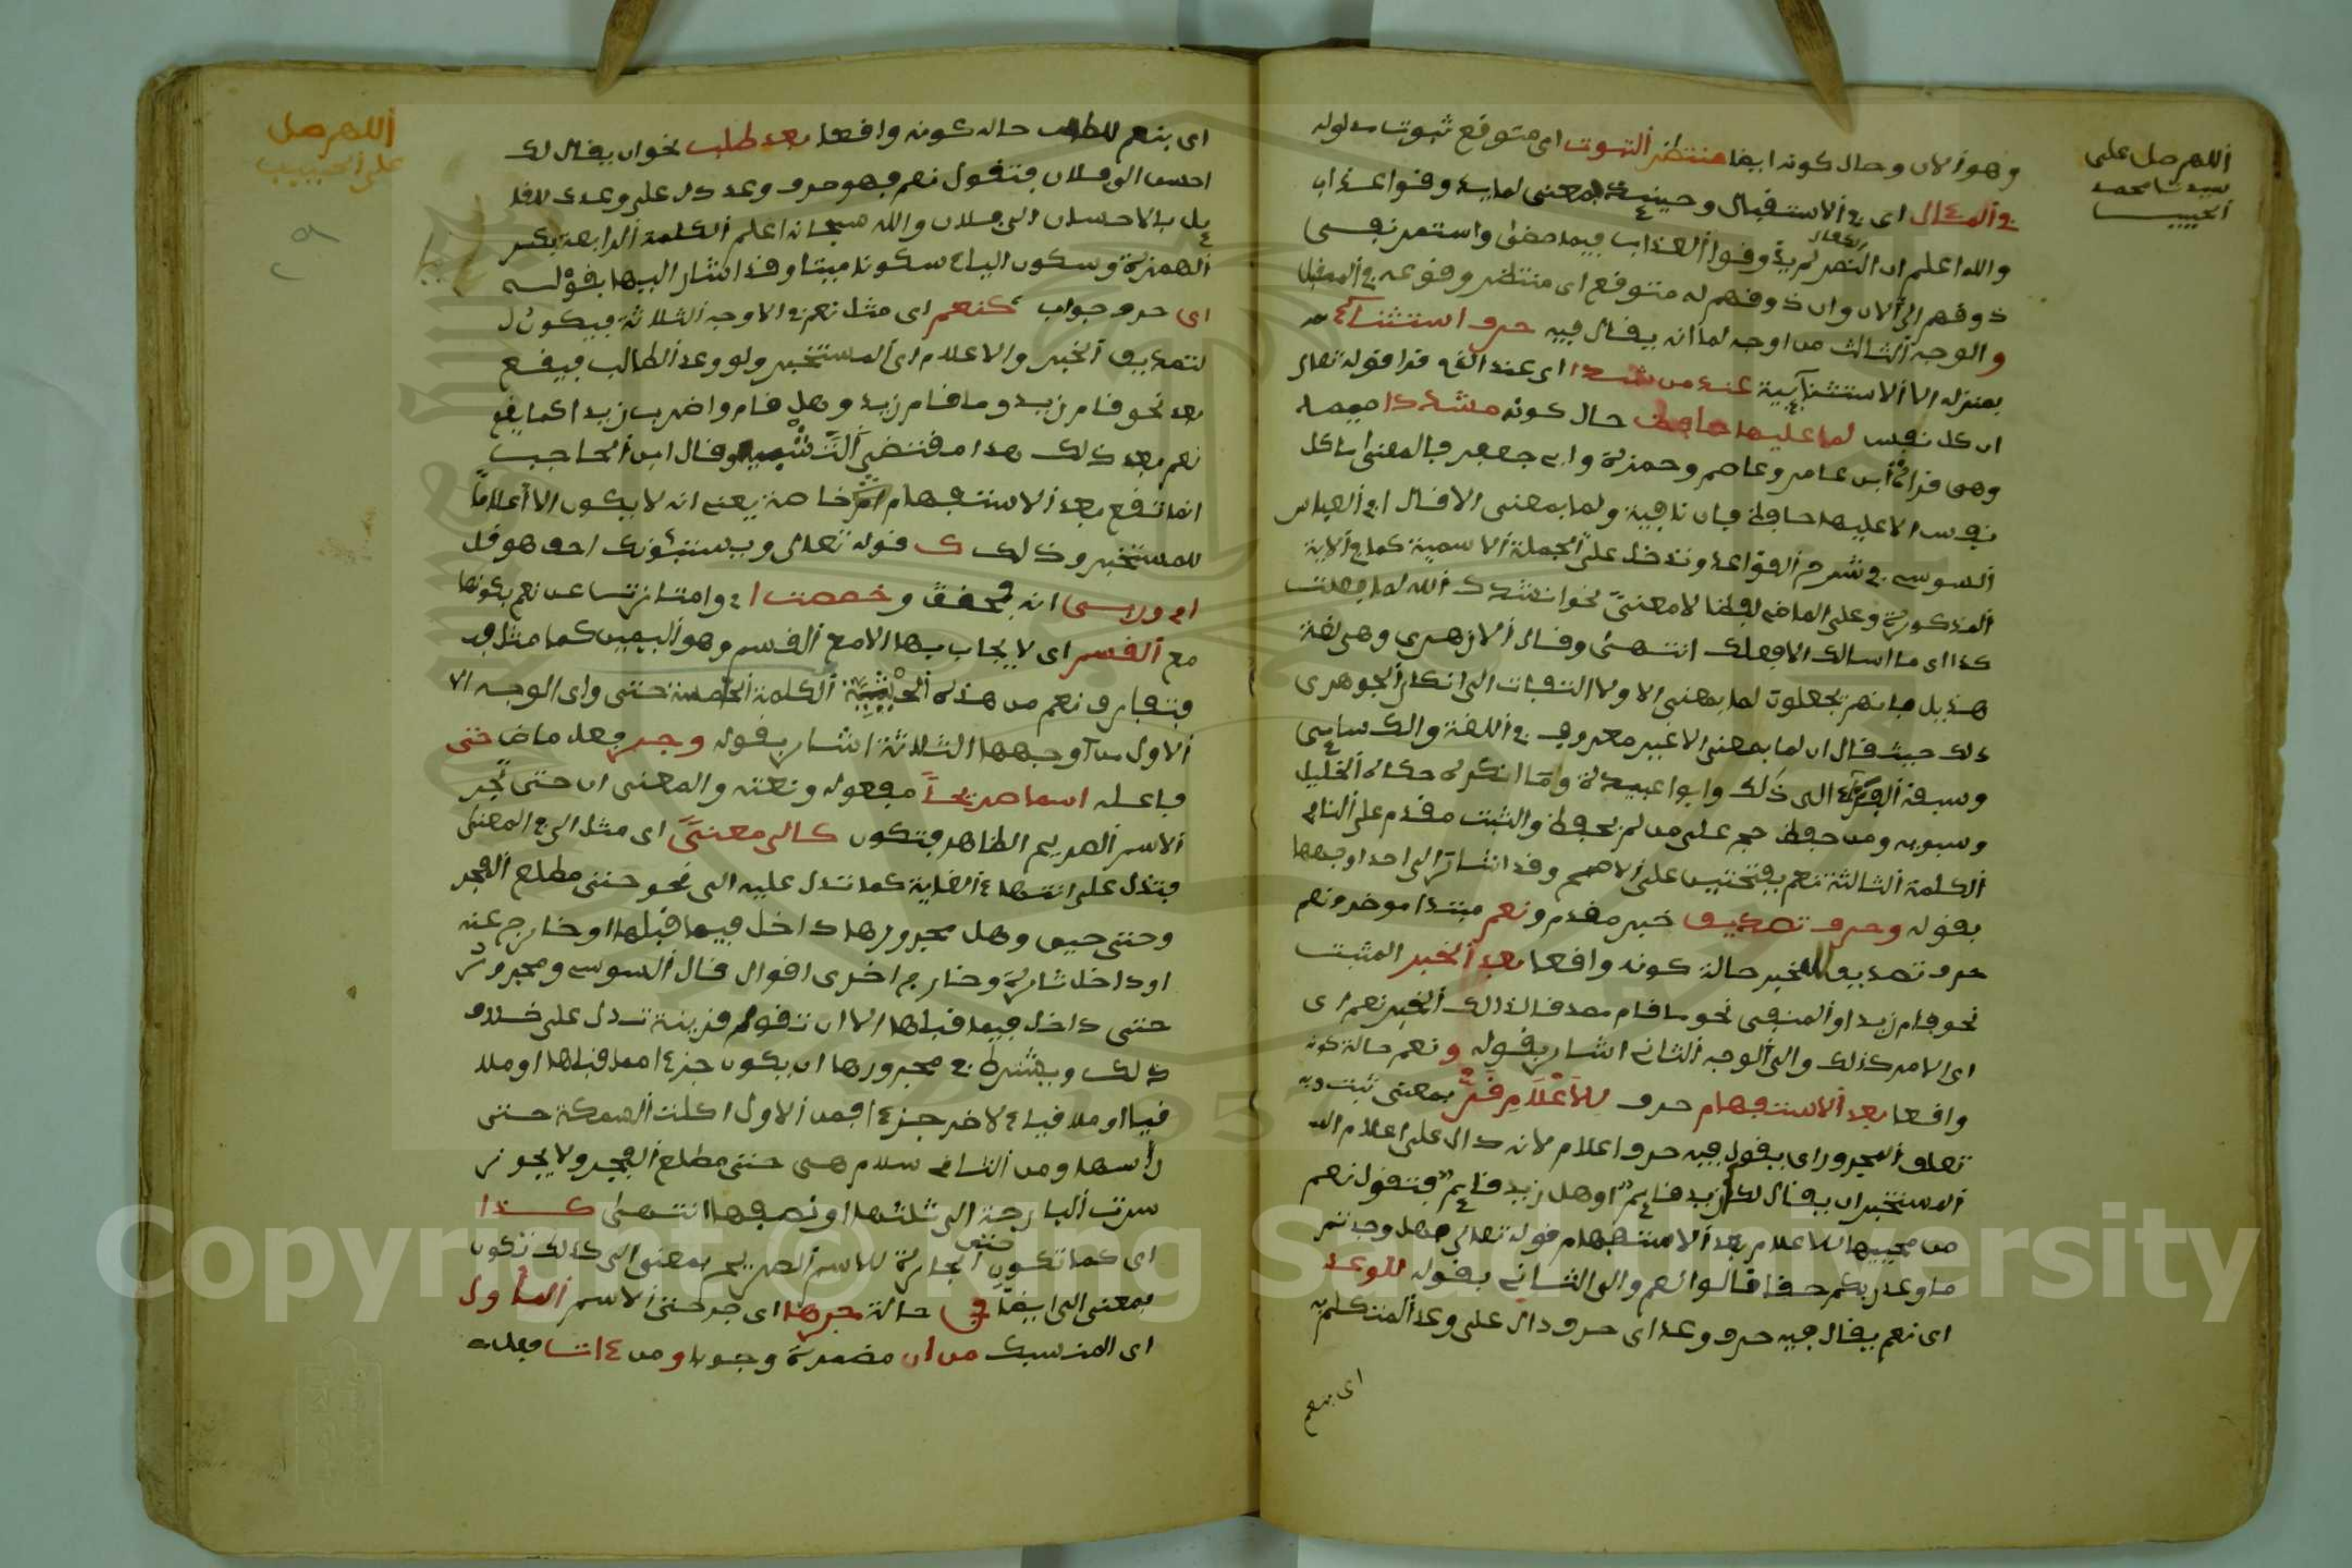 اللهم صل على
سيدنا محمد
الحبيب
وهو الان وحال كونه ايضا منتظر الثبوت اى متوقع ثبوت مدلوله
في المئال اى في الاستقبال وحينئذ فمعنى لما يذوقوا عذاب
والله اعلم ان الكفار لم يذوقوا العذاب فيما مضى واستمر نفي
ذوقهم الى الان وان ذوقهم له متوقع اى منتظر وقوعه في المستقبل
والوجه الثالث من اوجه لما انه يقال فيه حرف استثناء
بمنزلة الا الاستثنائية عند من شددا اى عند الذى قرا قوله تعالى
ان كل نفس لما عليها حافظ حال كونه مشددا ميمه
وهى قراءة ابن عامر وعاصم وحمزة وابى جعفر فالمعنى ما كل
نفس الا عليها حافظ فان نافية ولما بمعنى الا قال ابو العباس
السوسي في شرح القواعد وتدخل على الجملة الاسمية كما في الاية
المذكورة وعلى الماضي لفظا لا معنى نحو انشدك الله لما فعلت
كذا اى ما اسالك الا فعلك انتهى وقال الازهرى وهى لغة
هذيل فانهم يجعلون لما بمعنى الا ولا التفات الى انكار الجوهرى
ذلك حيث قال ان لما بمعنى الا غير معروف في اللغة والكسائي
وسبقه الفراء الى ذلك وابوا عبيدة وما انكره حكاه الخليل
وسبويه ومن حفظ حجة على من لم يحفظ والمثبت مقدم على النافي
الكلمة الثالثة نعم بفتحتين على الاصح وقد اشار الى احد اوجهها
بقوله وحرف تصديق خبر مقدم ونعم مبتدا موخر ونعم
حرف تصديق للخبر حالة كونه واقعا بعد الخبر المثبت
نحو قام زيد او المنفى نحو ما قام بعد قال ذلك الخبر نعم اى
اى الامر كذلك والى الوجه الثاني اشار بقوله ونعم حالة كونه
واقعا بعد الاستفهام حرف للاعلام قر بمعنى ثبت وبه
تعلق المجرور اى يقول فيه حرف اعلام لانه دال على اعلام
المستخبر ان يقال لك ازيد قايم او هل زيد قايم فتقول نعم
من مجيبها للاعلام بعد الاستفهام قوله تعالى فهل وجدتم
ما وعد ربكم حقا قالوا نعم والى الثالث بقوله للوعد
اى نعم يقال فيه حرف وعد اى حرف دال على وعد المتكلم به
اى بنعم
اللهم صل
على الحبيب
اى بنعم للطالب حاله كونه واقعا بعد طلب نحو ان يقال لك
احسن الى فلان فتقول نعم فهو حرف وعد دل على وعدك للقا
يل بالاحسان الى فلان والله سبحانه اعلم الكلمة الرابعة بكسر
الهمزة وسكون الياء سكونا ميتا وقد اشار اليها بقوله
اى حرف جواب كنعم اى مثل نعم في الاوجه الثلاثة فيكون
لتصديق الخبر والاعلام اى المستخبر ولو وعد الطالب فيقع
بعد نحو قام زيد وما قام زيد وهل قام واضرب زيدا كما يقع
نعم بعد ذلك هذا مقتضى التشبيه وقال ابن الحاجب
انما تقع بعد الاستفهام خاصة يعني انه لا يكون الا اعلاما
للمستخبر وذلك ك قوله تعالى ويستنبئونك احق هو قل
اى وربي انه لحق وخصصت اى وامتازت عن نعم بكونها
مع القسم اى لا يجاب بها الا مع القسم وهو اليمين كما مثل به
فتفارق نعم من هذه الحيثية الكلمة الخامسة حتى والى الوجه الا
الاول من اوجهها الثلاثة اشار بقوله وجر فعل ماض حتى
فاعله اسما صريحا مفعوله ونعته والمعنى ان حتى تجر
الاسم الصريح الظاهر فتكون كالى معنى اى مثل الى في المعنى
فتدل على انتهاء الغاية كما تدل عليه الى نحو حتى مطلع الفجر
وحتى حين وهل مجرورها داخل فيما قبلها او خارج عنه
او داخل تارة وخارج اخرى اقوال قال السوسي ومجرور
حتى داخل فيما قبلها الا ان تقوم قرينة تدل على خلاف
ذلك ويشترط في مجرورها ان يكون جزءا مما قبلها او ملا
قيا او ملاقياء لاخر جزء فمن الاول اكلت السمكة حتى
راسها ومن الثاني سلام هى حتى مطلع الفجر ولا يجوز
سرت البارحة الى ثلثها او نصفها انتهى كذا
اى كما تكون حتى الجارة للاسم الصريح بمعنى الى كذلك تكون
بمعنى الى ايضا في حالة جرها اى جر حتى الاسم المأول
اى المنسبك من ان مضمرة وجوبا ومن ءات فعله